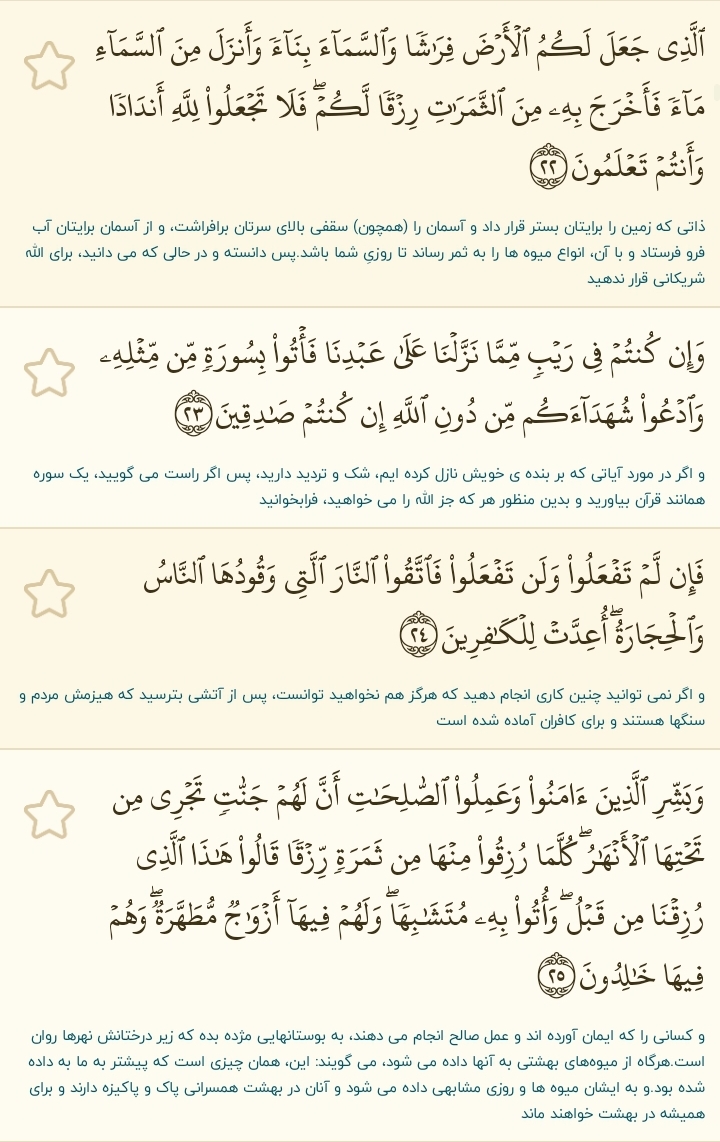 ٱلَّذِى جَعَلَ لَكُمُ ٱلْأَرْضَ فِرَٰشًا وَٱلسَّمَآءَ بِنَآءً وَأَنزَلَ مِنَ ٱلسَّمَآءِ
مَآءً فَأَخْرَجَ بِهِۦ مِنَ ٱلثَّمَرَٰتِ رِزْقًا لَّكُمْ ۖ فَلَا تَجْعَلُوا۟ لِلَّهِ أَندَادًا
وَأَنتُمْ تَعْلَمُونَ ٢٢
ذاتی که زمین را برایتان بستر قرار داد و آسمان را (همچون) سقفی بالای سرتان برافراشت، و از آسمان برایتان آب
فرو فرستاد و با آن، انواع میوه ها را به ثمر رساند تا روزیِ شما باشد.پس دانسته و در حالی که می دانید، برای الله
شریکانی قرار ندهید
وَإِن كُنتُمْ فِى رَيْبٍ مِّمَّا نَزَّلْنَا عَلَىٰ عَبْدِنَا فَأْتُوا۟ بِسُورَةٍ مِّن مِّثْلِهِۦ
وَٱدْعُوا۟ شُهَدَآءَكُم مِّن دُونِ ٱللَّهِ إِن كُنتُمْ صَٰدِقِينَ ٢٣
و اگر در مورد آیاتی که بر بنده ی خویش نازل کرده ایم، شک و تردید دارید، پس اگر راست می گویید، یک سوره
همانند قرآن بیاورید و بدین منظور هر که جز الله را می خواهید، فرابخوانید
فَإِن لَّمْ تَفْعَلُوا۟ وَلَن تَفْعَلُوا۟ فَٱتَّقُوا۟ ٱلنَّارَ ٱلَّتِى وَقُودُهَا ٱلنَّاسُ
وَٱلْحِجَارَةُ ۖ أُعِدَّتْ لِلْكَٰفِرِينَ ٢٤
و اگر نمی توانید چنین کاری انجام دهید که هرگز هم نخواهید توانست، پس از آتشی بترسید که هیزمش مردم و
سنگها هستند و برای کافران آماده شده است
وَبَشِّرِ ٱلَّذِينَ ءَامَنُوا۟ وَعَمِلُوا۟ ٱلصَّٰلِحَٰتِ أَنَّ لَهُمْ جَنَّٰتٍ تَجْرِى مِن
تَحْتِهَا ٱلْأَنْهَٰرُ ۖ كُلَّمَا رُزِقُوا۟ مِنْهَا مِن ثَمَرَةٍ رِّزْقًا قَالُوا۟ هَٰذَا ٱلَّذِى
رُزِقْنَا مِن قَبْلُ ۖ وَأُتُوا۟ بِهِۦ مُتَشَٰبِهًا ۖ وَلَهُمْ فِيهَآ أَزْوَٰجٌ مُّطَهَّرَةٌ ۖ وَهُمْ
فِيهَا خَٰلِدُونَ ٢٥
و کسانی را که ایمان آورده اند و عمل صالح انجام می دهند، به بوستانهایی مژده بده که زیر درختانش نهرها روان
است.هرگاه از میوه‌های بهشتی به آنها داده می شود، می گویند: این، همان چیزی است که پیشتر به ما به داده
شده بود.و به ایشان میوه ها و روزی مشابهی داده می شود و آنان در بهشت همسرانی پاک و پاکیزه دارند و برای
همیشه در بهشت خواهند ماند